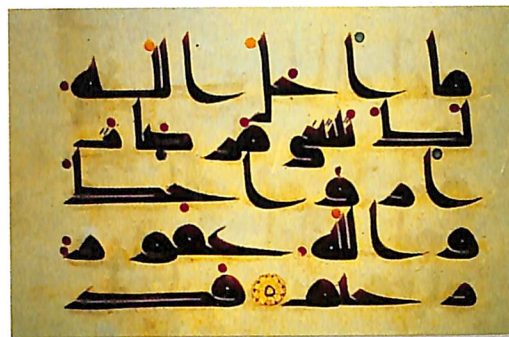 ما احل الله
لك تبتغى مرضات
ازواجك
والله غفور
رحيم قد